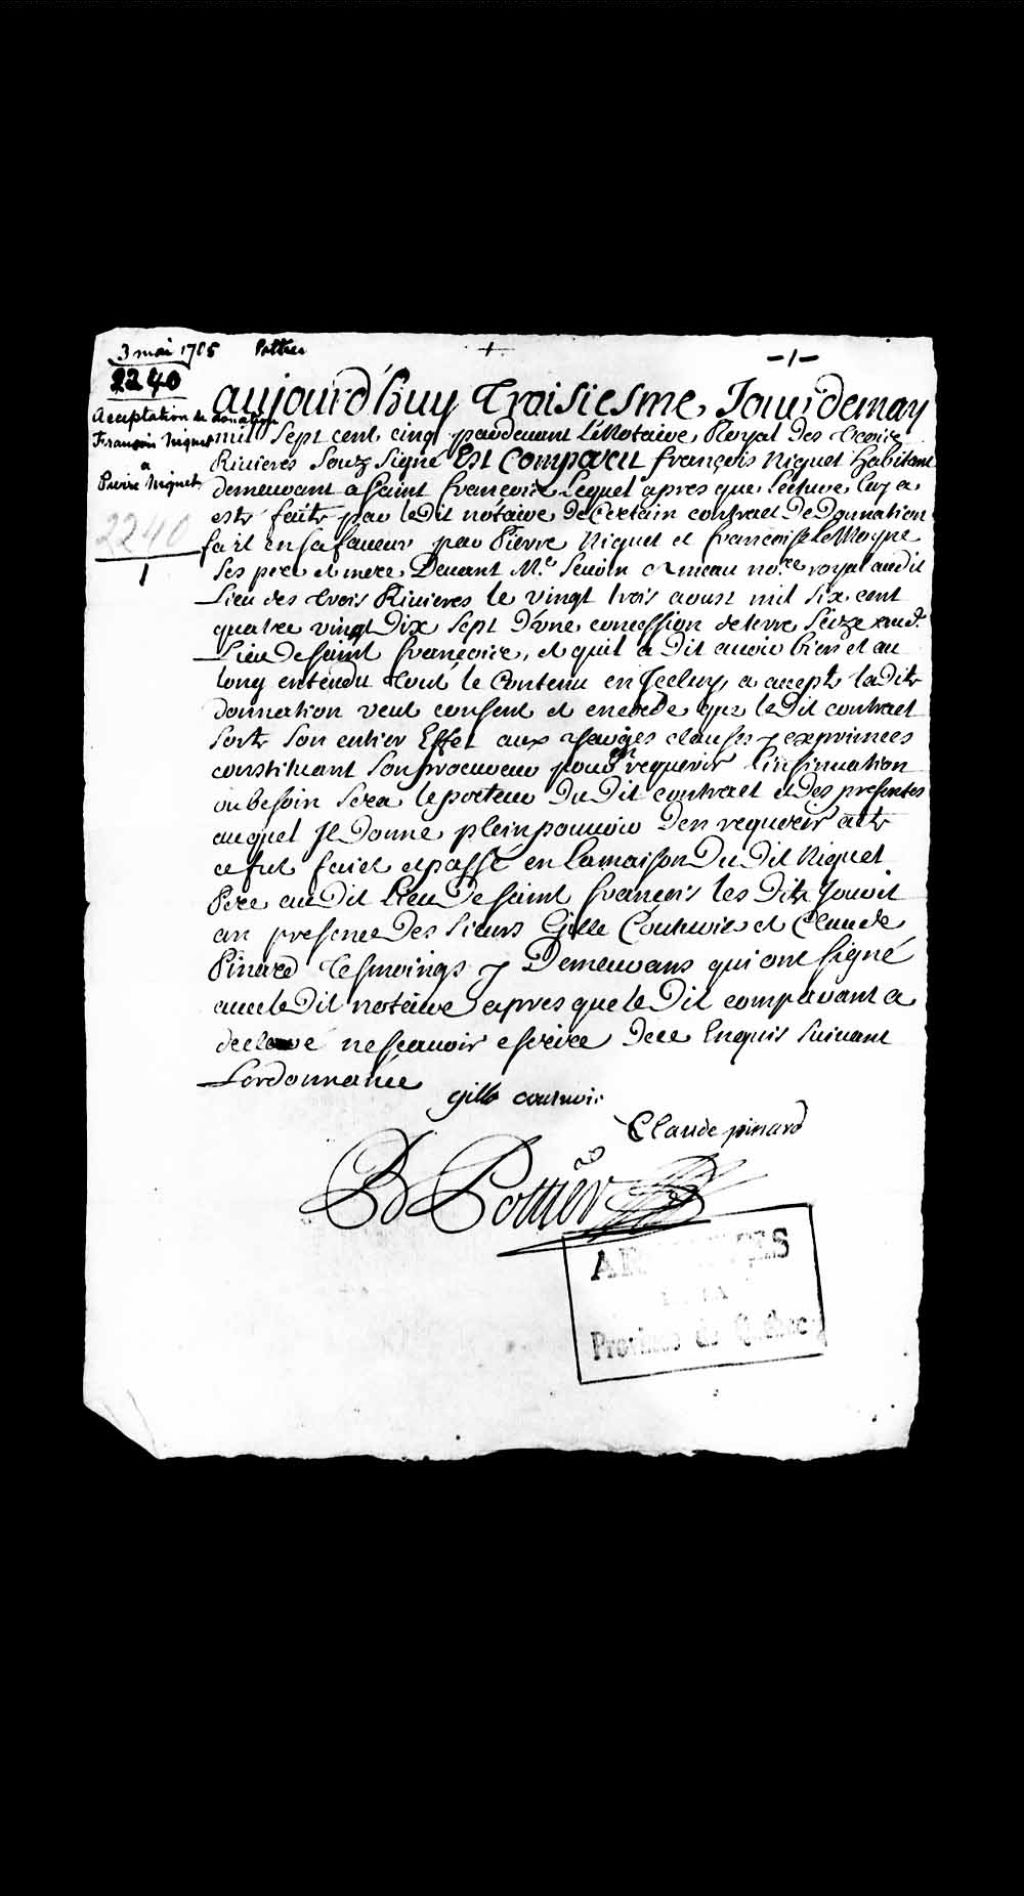 3 mai 1705 Pottier
+
-1-
2240
Acceptation de donation
François Niquet
a
Pierre Niquet
2240
1
aujourd'huy Troisiesme Jour de may
mil Sept cent cinq pardevant Le Notaire Royal Des Trois
Rivieres Souz Signé Est Comparu françois Niquet habitant
demeurant a Saint françois Lequel apres que Lecture luy a
esté faite par ledit notaire De Certain contract De Donnation
fait en sa faveur par Pierre Niquet et françoise Le Moyne
Ses pere et mere Devant Me. Severin Ameau nore. royal audit
Lieu des trois Rivieres le vingt trois aoust mil six cent
quatre vingt Dix Sept D'une concession de terre Size aud.
Lieu De Saint françois, et quil a Dit avoir bien et au
long entendu tout le Contenu en Jceluy, a accepté la Dite
donnation veut consent et accorde que le Dit contract
Sorte Son entier Effet aux charges clauses y exprimees
constituant Son procureur pour en requerir L'insinuation
ou besoin Sera le porteur Du Dit contract et Des presentes
auquel Jl Donne plein pouvoir D'en requerir acte
ce fut faict et passé en la maison Du Dit Niquet
Pere au Dit Lieu De Saint françois les Dits Jour et
an presence Des Sieurs Gille Couturier et Claude
Pinard tesmoings y Demeurans qui ont Signé
avec le Dit notaire apres que le Dit comparant a
declaré ne scavoir escrire De ce Enquis Suivant
Lordonnance
gille couturie
Claude pinard
D Pottier
ARCHIVES
DE LA
Province de Québec